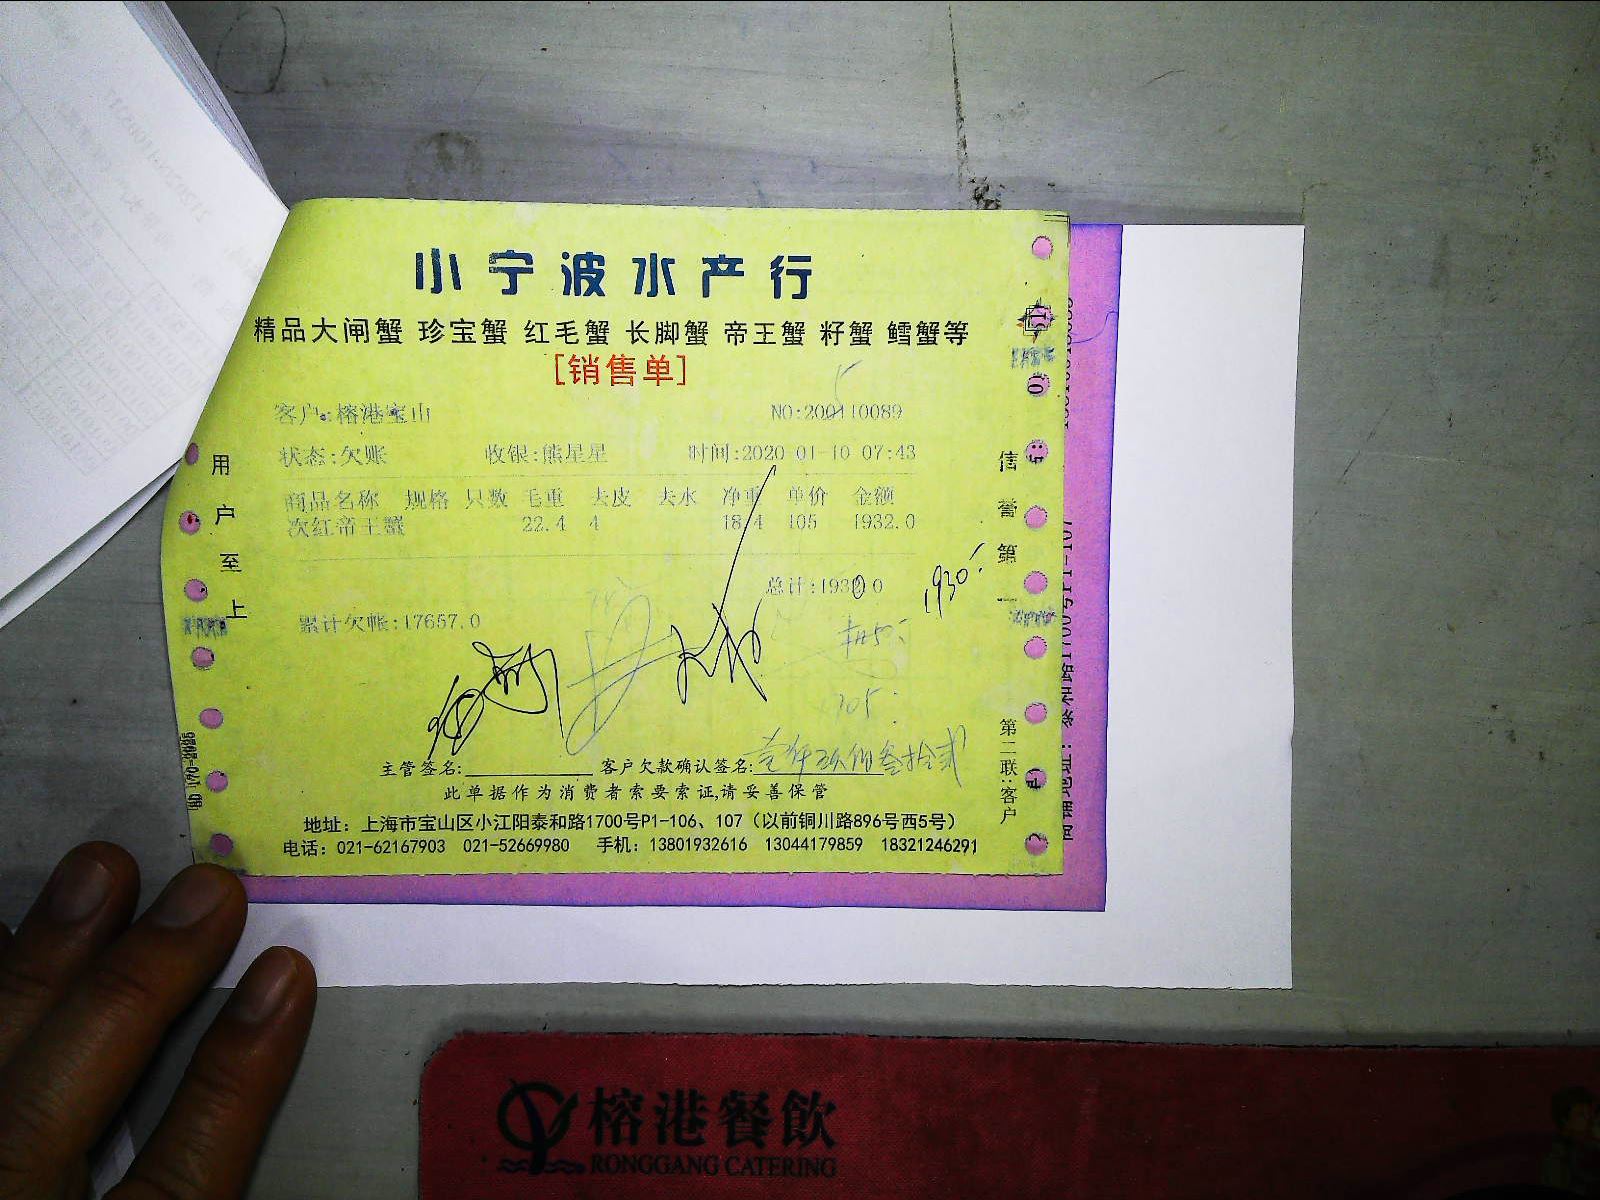 小宁波水产行
精品大闸蟹 珍宝蟹 红毛蟹 长脚蟹 帝王蟹 籽蟹 鳕蟹等
[销售单]
客户:榕港宝山 NO:200110089
5
状态:欠账 收银:熊星星 时间:2020-01-10 07:43
商品名称 规格 只数 毛重 去皮 去水 净重 单价 金额
次红帝王蟹 22.4 4 18.4 105 1932.0
总计:1930.0
1930
累计欠帐:17657.0
105
壹仟玖佰叁拾贰
主管签名: 客户欠款确认签名:
此单据作为消费者索要索证,请妥善保管
地址: 上海市宝山区小江阳泰和路1700号P1-106、107 (以前铜川路896号西5号)
电话: 021-62167903 021-52669980 手机: 13801932616 13044179859 18321246291
用户至上
信誉第一
第二联:客户
榕港餐飲
RONGGANG CATERING